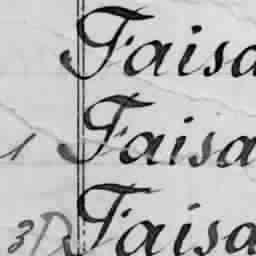 Faisa
1 Faisa
3D Faisa